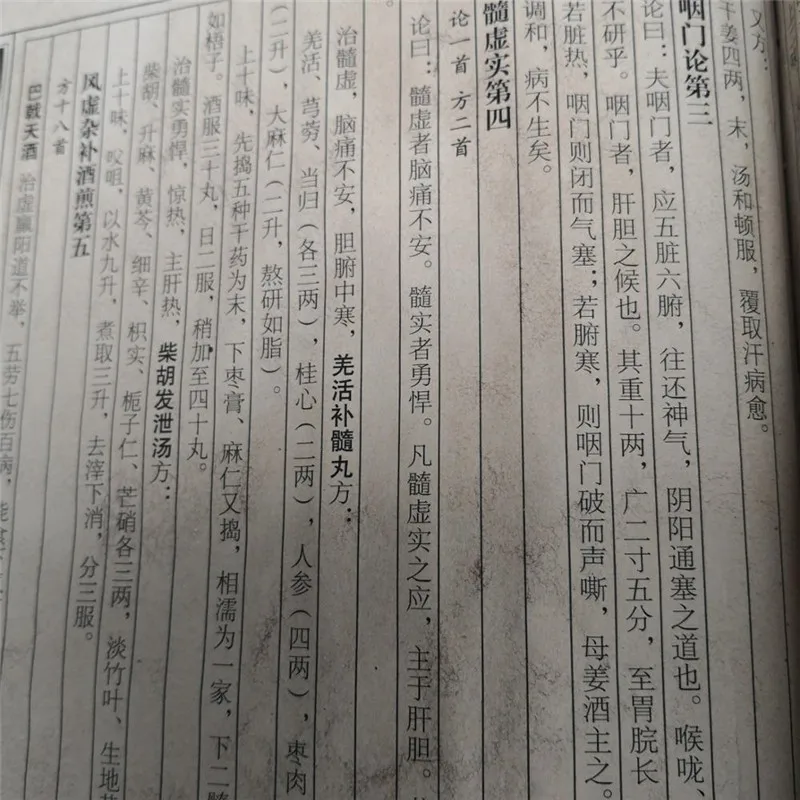 又方：
干姜四两，末，汤和顿服，覆取汗病愈。
咽门论第三
论曰：夫咽门者，应五脏六腑，往还神气，阴阳通塞之道也。喉咙、
不研乎。咽门者，肝胆之候也。其重十两，广二寸五分，至胃脘长
若脏热，咽门则闭而气塞；若腑寒，则咽门破而声嘶，母姜酒主之。
调和，病不生矣。
髓虚实第四
论一首 方二首
论曰：髓虚者脑痛不安。髓实者勇悍。凡髓虚实之应，主于肝胆。
治髓虚，脑痛不安，胆腑中寒，羌活补髓丸方：
羌活、芎䓖、当归（各三两），桂心（二两），人参（四两），枣肉
（二升），大麻仁（二升，熬研如脂）。
上十味，先捣五种干药为末，下枣膏、麻仁又捣，相濡为一家，下二
如梧子。酒服三十丸，日二服，稍加至四十丸。
治髓实勇悍，惊热，主肝热，柴胡发泄汤方：
柴胡、升麻、黄芩、细辛、枳实、栀子仁、芒硝各三两，淡竹叶、生地
上十味，㕮咀，以水九升，煮取三升，去滓下消，分三服。
风虚杂补酒煎第五
方十八首
巴戟天酒 治虚羸阳道不举，五劳七伤百病，能食